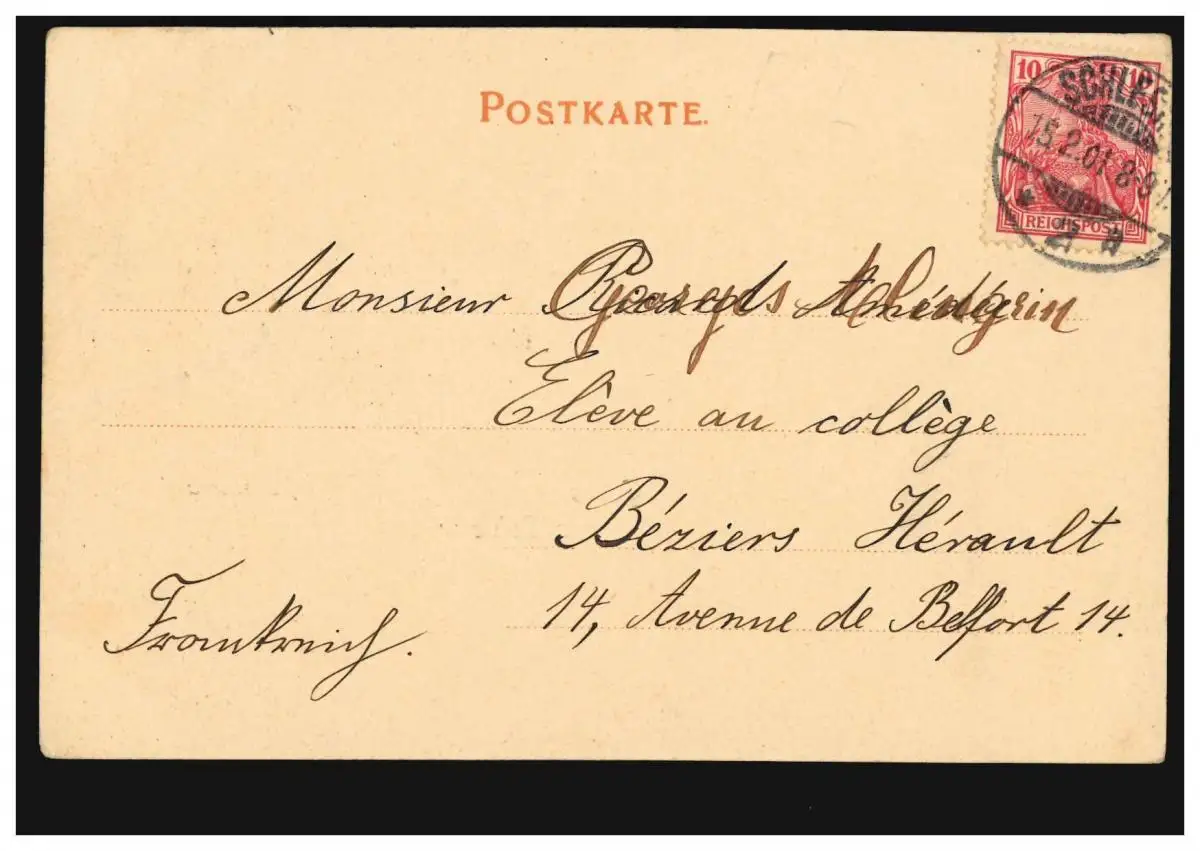 POSTKARTE.
10 10
SCHLES
15.2.01. 8-9
REICHSPOST
Monsieur
Elève au collège
Béziers Hérault
14, Avenue de Belfort 14.
Frankreich.